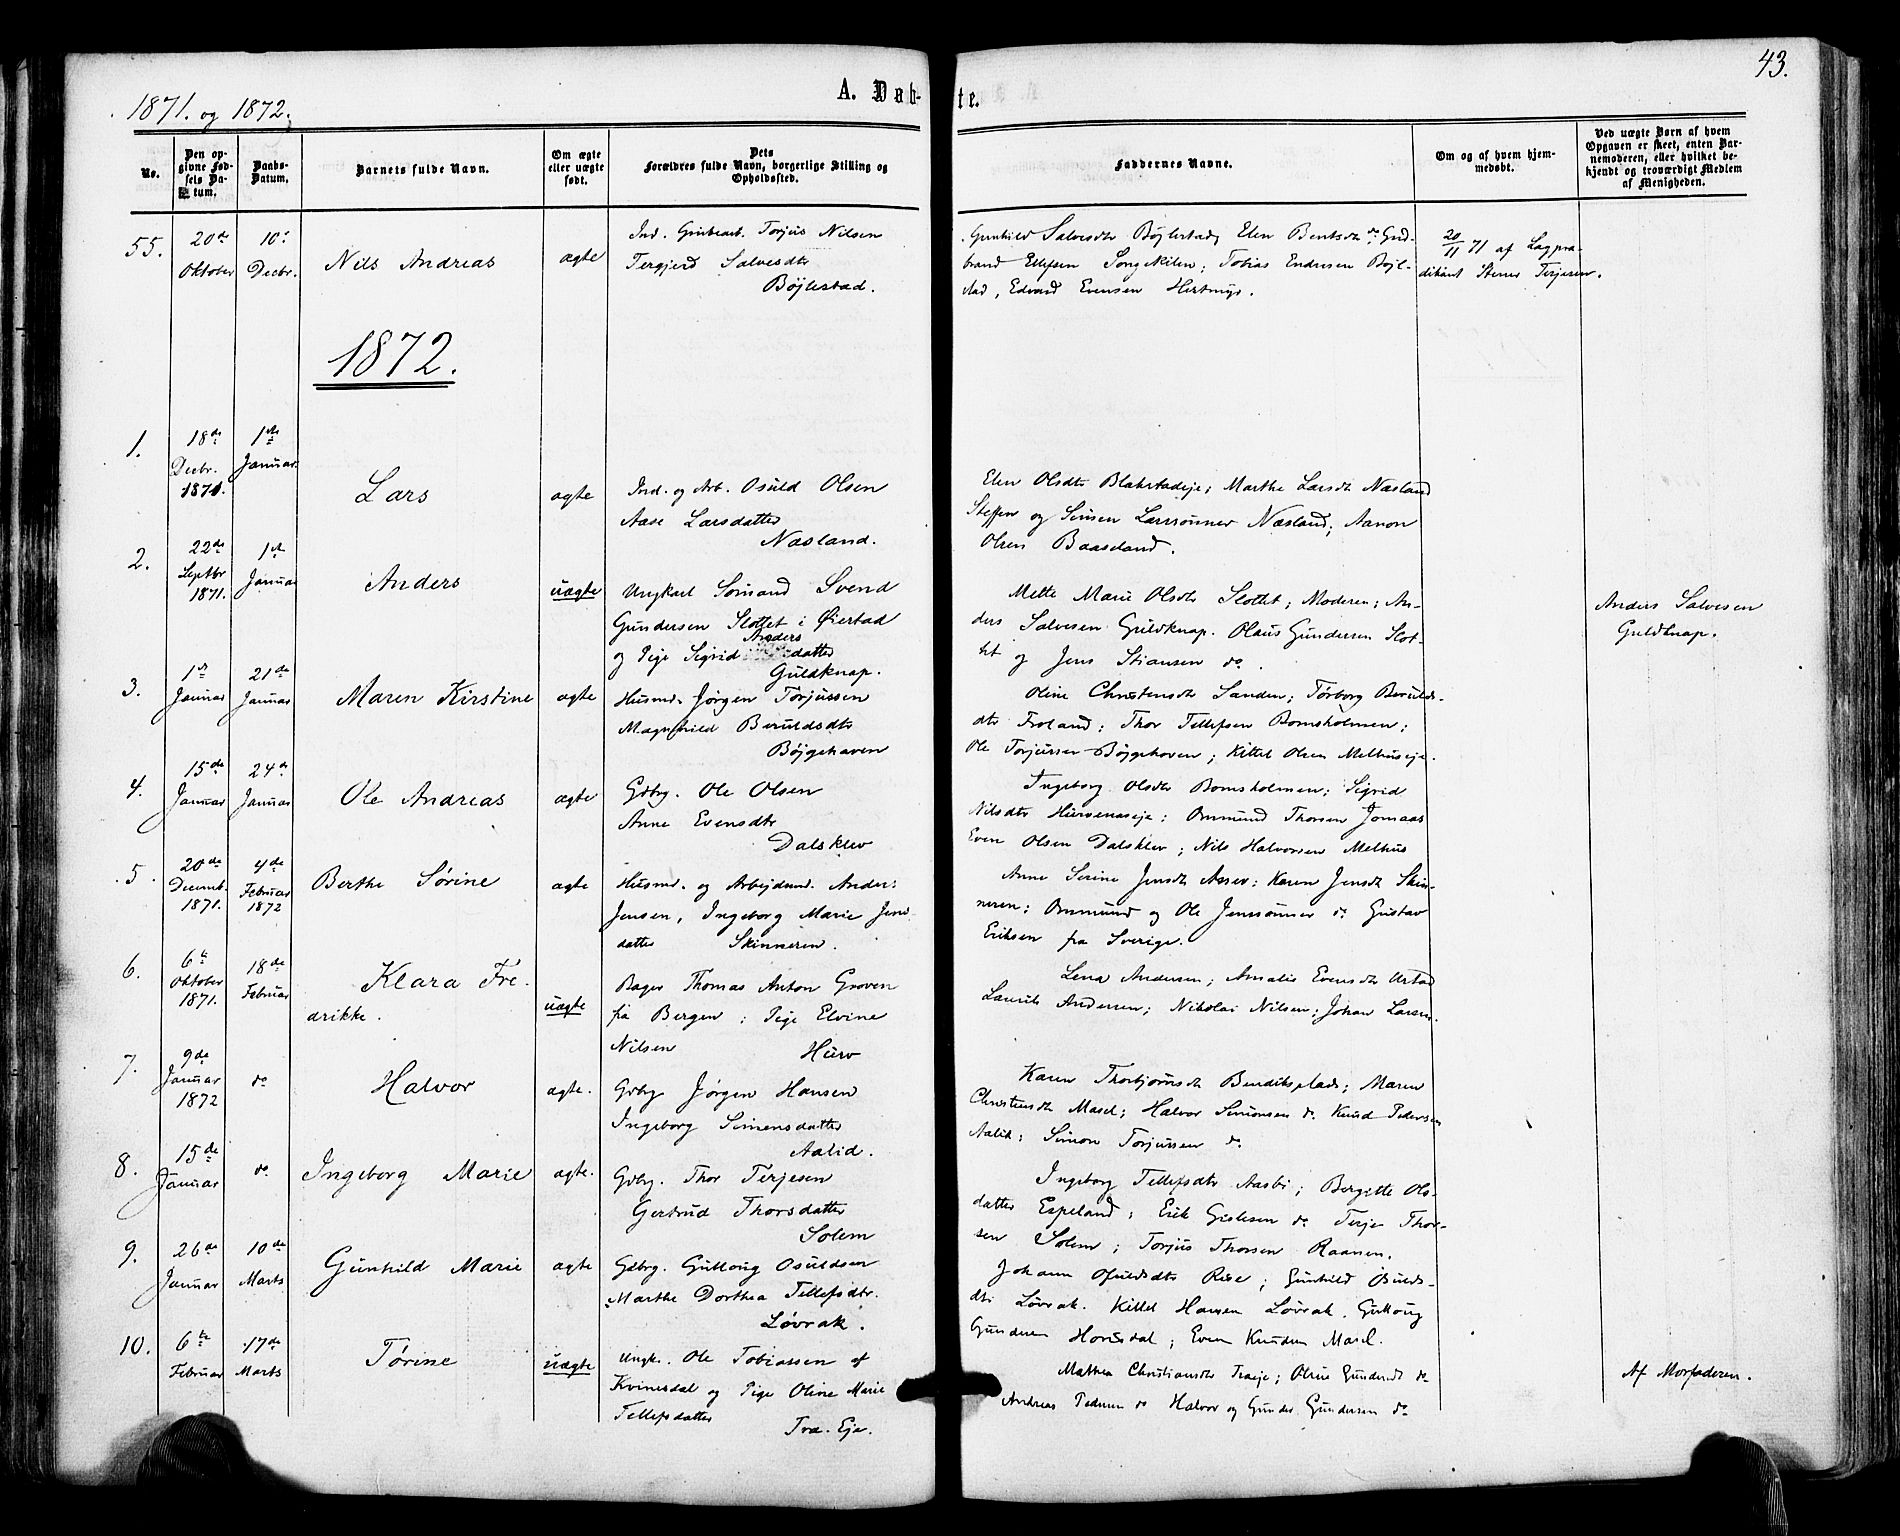 43.
1871. og 1872.
A. Døb-
te.
No.
Den op-
givne Fød-
sels Da-
tum.
Daabs-
Datum.
Barnets fulde Navn.
Om ægte
eller uægte
født.
Dets
Forældres fulde Navn, borgerlige Stilling og
Opholdssted.
Faddernes Navne.
Om og af hvem hjem-
medøbt.
Ved uægte Børn af hvem
Opgaven er skeet, enten Bar-
nemoderen, eller hvilket be-
kjendt og troværdigt Medlem
af Menigheden.
55.
20de
Oktober
10.
Decbr.
Nils Andreas
ægte
Ind. Grubearb. Torjus Nilsen
Tergjerd Salvesdtr
Bøjlestad.
Gunhild Salvesdtr Bøjlestad, Elen Bentsdtr do. Gud-
brand Ellefsen Songekilen; Tobias Endresen Bøjl-
stad, Edvard Evensen Hestmyr.
20/11 71 af Lagpræ-
dikant Terjesen.
1872.
1.
18de
Decbr.
1871.
1ste
Januar.
Lars
ægte
Ind. og Arb. Osuld Olsen
Aase Larsdatter
Næsland.
Elen Olsdtr Blakstadeje; Marthe Larsdtr Næsland
Steffen og Simen Larssønner Næsland; Aanon
Olsen Baaseland.
2.
22de
Septbr
1871.
1ste
Januar
Anders
uægte
Ungkarl Sømand Svend
Gundersen Slottet i Øiestad
og Pige Sigrid Andersdatter
Guldknap.
Mette Marie Olsdtr Slottet; Moderen; An-
ders Salvesen Guldknap. Olaus Gundersen Slot-
tet og Jens Stiansen do.
Anders Salvesen
Guldknap.
3.
1ste
Januar
21de
Januar
Maren Kirstine
ægte
Husmd. Jørgen Torjussen
Magnhild Beruldsdtr
Bøjgehaven
Oline Christensdtr Sanden; Tørborg Beruld-
dtr Froland; Thor Tellefsen Bomsholmen;
Ole Torjussen Bøjgehoven; Kittel Olsen Melhuseje.
4.
15de
Januar
24de
Januar
Ole Andreas
ægte
Gdbrg. Ole Olsen
Anne Evensdtr
Dalsklev
Ingeborg Olsdtr Bomsholmen; Sigrid
Nilsdtr Hurvenæseje; Ommund Thorsen Jomaas
Even Olsen Dalsklev; Nils Halvorsen Melhus
5.
20de
Decemb.
1871.
4de
Februar
1872
Berthe Sørine
ægte
Husmd. og Arbejdsmd. Anders
Jensen, Ingeborg Marie Jens-
datter Skinneren.
Anne Serine Jensdtr Assev; Karen Jensdtr Skin-
neren; Ommund og Ole Jenssønner do Gustav
Eriksen fra Sverige.
6.
6te
Oktober
1871.
18de
Februar
Klara Fre-
drikke.
uægte
Bager Thomas Anton Groven
fra Bergen; Pige Elvine
Nilsen Hurv
Lena Andersen; Amalie Evensdtr Ustad
Laurits Andersen; Nikolai Nilsen; Johan Larsen.
7.
9de
Januar
1872
do
Halvor
ægte.
Gdbrg Jørgen Hansen
Ingeborg Simensdatter
Aalid.
Karen Thorbjørnsdtr Bendiksplads; Maren
Christensdtr Masel; Halvor Simonsen do Knud Pedersen
Aalid; Simon Torjussen do
8.
15de
Januar
do
Ingeborg Marie
ægte.
Gdbrg. Thor Terjesen
Gertrud Thorsdatter
Solem
Ingeborg Tellefsdtr Aasbø; Bergitte Ols-
datter Espeland; Erik Gislesen do Terje Thor-
sen Solem; Torjus Thorsen Raanen.
9.
26de
Januar
10de
Marts
Gunhild Marie
ægte
Gdbrg. Guttorg Osuldsen
Marthe Dorthea Tellefsdtr.
Løvrak.
Johann Osuldsdtr Rise; Gunhild Osulds-
dtr Løvrak. Kittel Hansen Løvrak. Guttorg
Gundersen Hornsdal; Even Knudsen Masel.
10.
6te
Februar
17de
Marts
Tørine
uægte
Ungk. Ole Tobiassen af
Kvinesdal og Pige Oline Marie
Tellefsdatter
Træ. Eje.
Mathea Christiansdtr Træeje; Oline Gundersdtr do
Andreas Pedersen do Halvor og Gunder Gundersen do
Af Morfaderen.